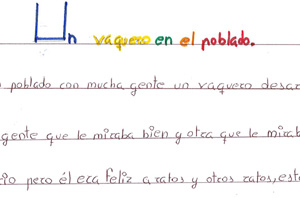 Un vaquero en el poblado.
poblado con mucha gente un vaquero desar
gente que le miraba bien y otra que le mirab
pero él era feliz a ratos y otros ratos, est